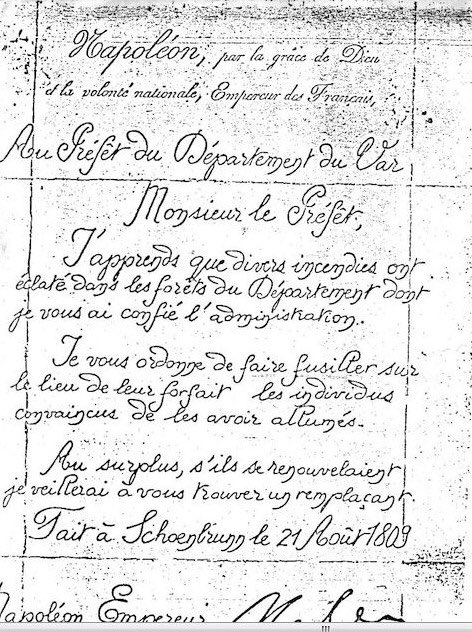 Napoléon, par la grâce de Dieu
et la volonté nationale, Empereur des Français,
Au Préfêt du Département du Var
Monsieur le Préfêt,
J'apprends que divers incendies ont
éclaté dans les forêts du Département dont
je vous ai confié l'administration.
Je vous ordonne de faire fusiller sur
le lieu de leur forfait les individus
convaincus de les avoir allumés.
Au surplus, s'ils se renouvelaient
je veillerai à vous trouver un remplaçant.
Fait à Schoenbrunn le 21 Août 1809
Napoléon Empereur